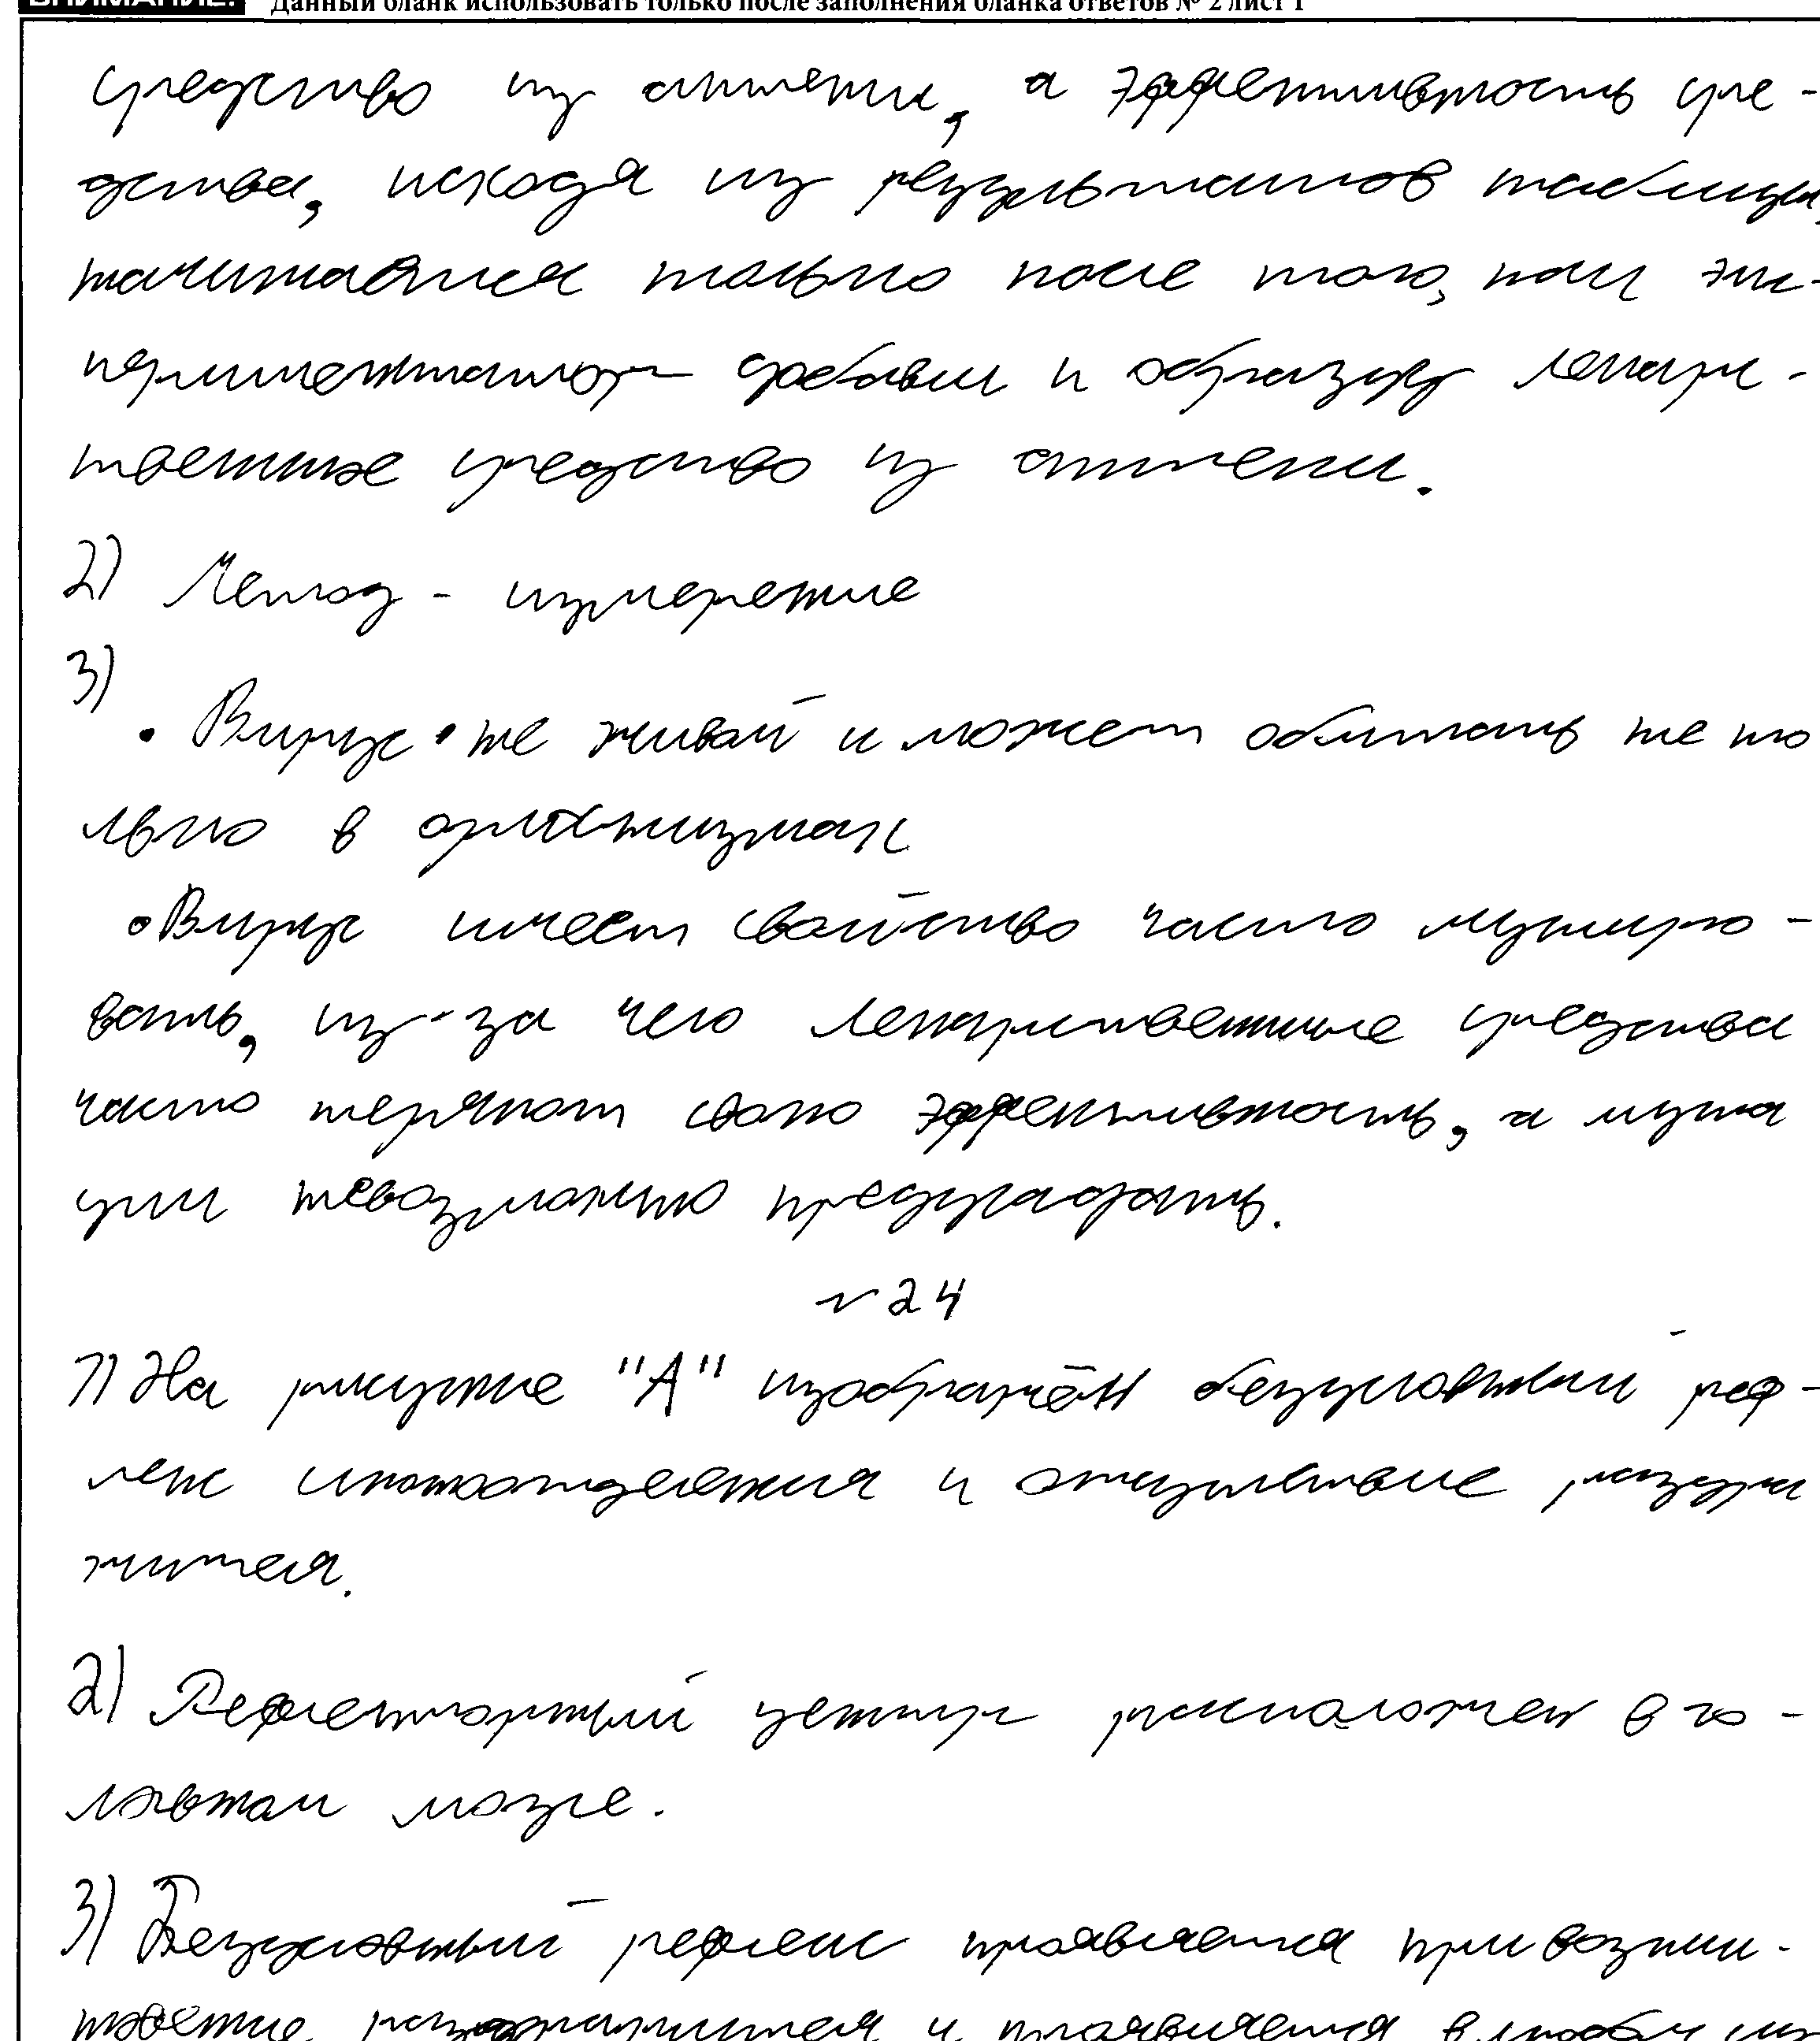 ВНИМАНИЕ! Данный бланк использовать только после заполнения бланка ответов № 2 лист 1
средство из аптеки, а эффективность сре-
дства, исходя из результатов таблицы,
начинается только после того, как экс-
периментатор добавил к образцу лекарс-
твенное средство из аптеки.
2) Метод - измерение
3)
• Вирус не живой и может обитать не то
лько в организмах
• Вирус имеет свойство часто мутиро-
вать, из-за чего лекарственные средства
часто теряют свою эффективность, а мута
ции невозможно предугадать.
№ 24
1) На рисунке "А" изображён безусловный реф-
лекс слюноотделения и отсутствие раздра
жителя.
2) Рефлекторный центр расположен в го-
ловном мозге.
3) Безусловный рефлекс проявляется при возник-
новении раздражителя и проявляется в любом